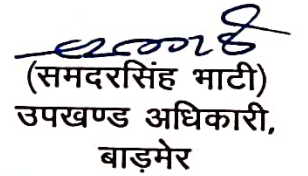 (समदरसिंह भाटी)
उपखण्ड अधिकारी,
बाड़मेर